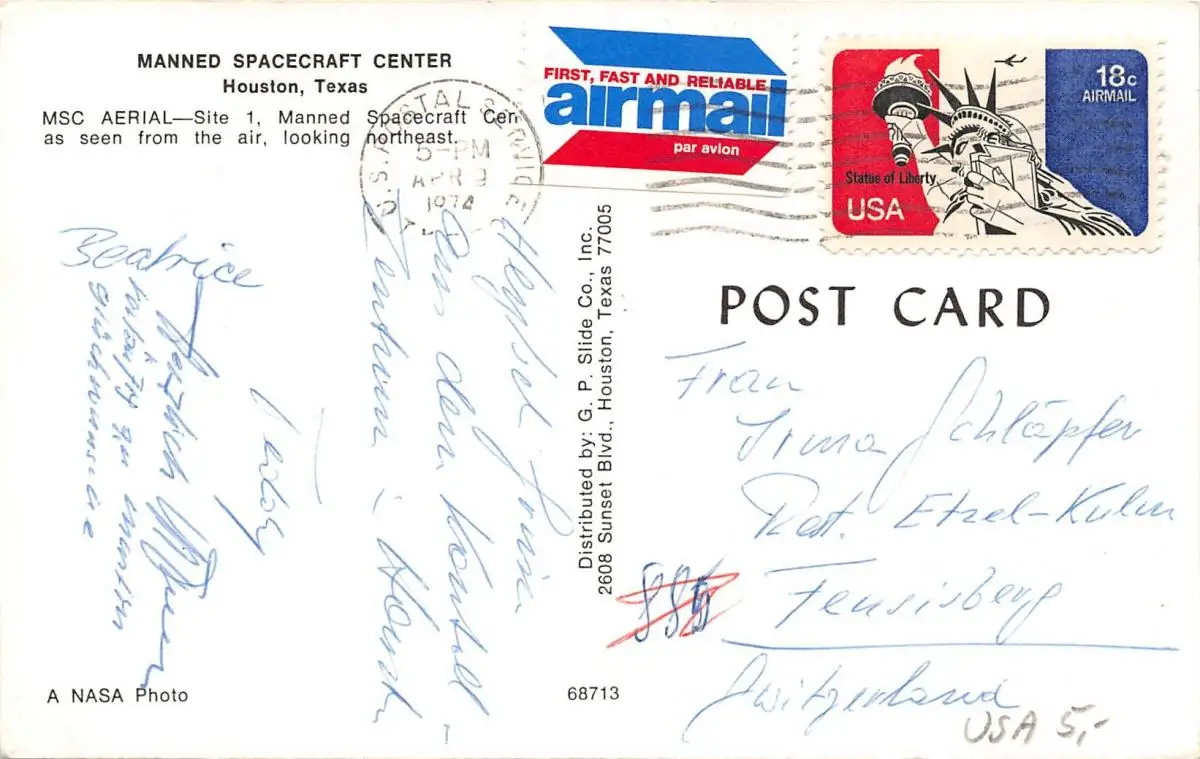 MANNED SPACECRAFT CENTER
Houston, Texas
MSC AERIAL—Site 1, Manned Spacecraft Cen
as seen from the air, looking northeast.
U.S. POSTAL SERVICE
5-PM
APR
1974
FIRST, FAST AND RELIABLE
airmail
par avion
18c
AIRMAIL
Statue of Liberty
USA
POST CARD
Frau
Irma Schläpfer
Rest. Etzel-Kulm
Feusisberg
Switzerland
USA 5,-
Distributed by: G. P. Slide Co., Inc.
2608 Sunset Blvd., Houston, Texas 77005
aus dem Kontroll-
Zentrum
Beatrice
A NASA Photo
68713